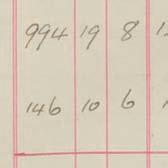 994 19 8
146 10 6